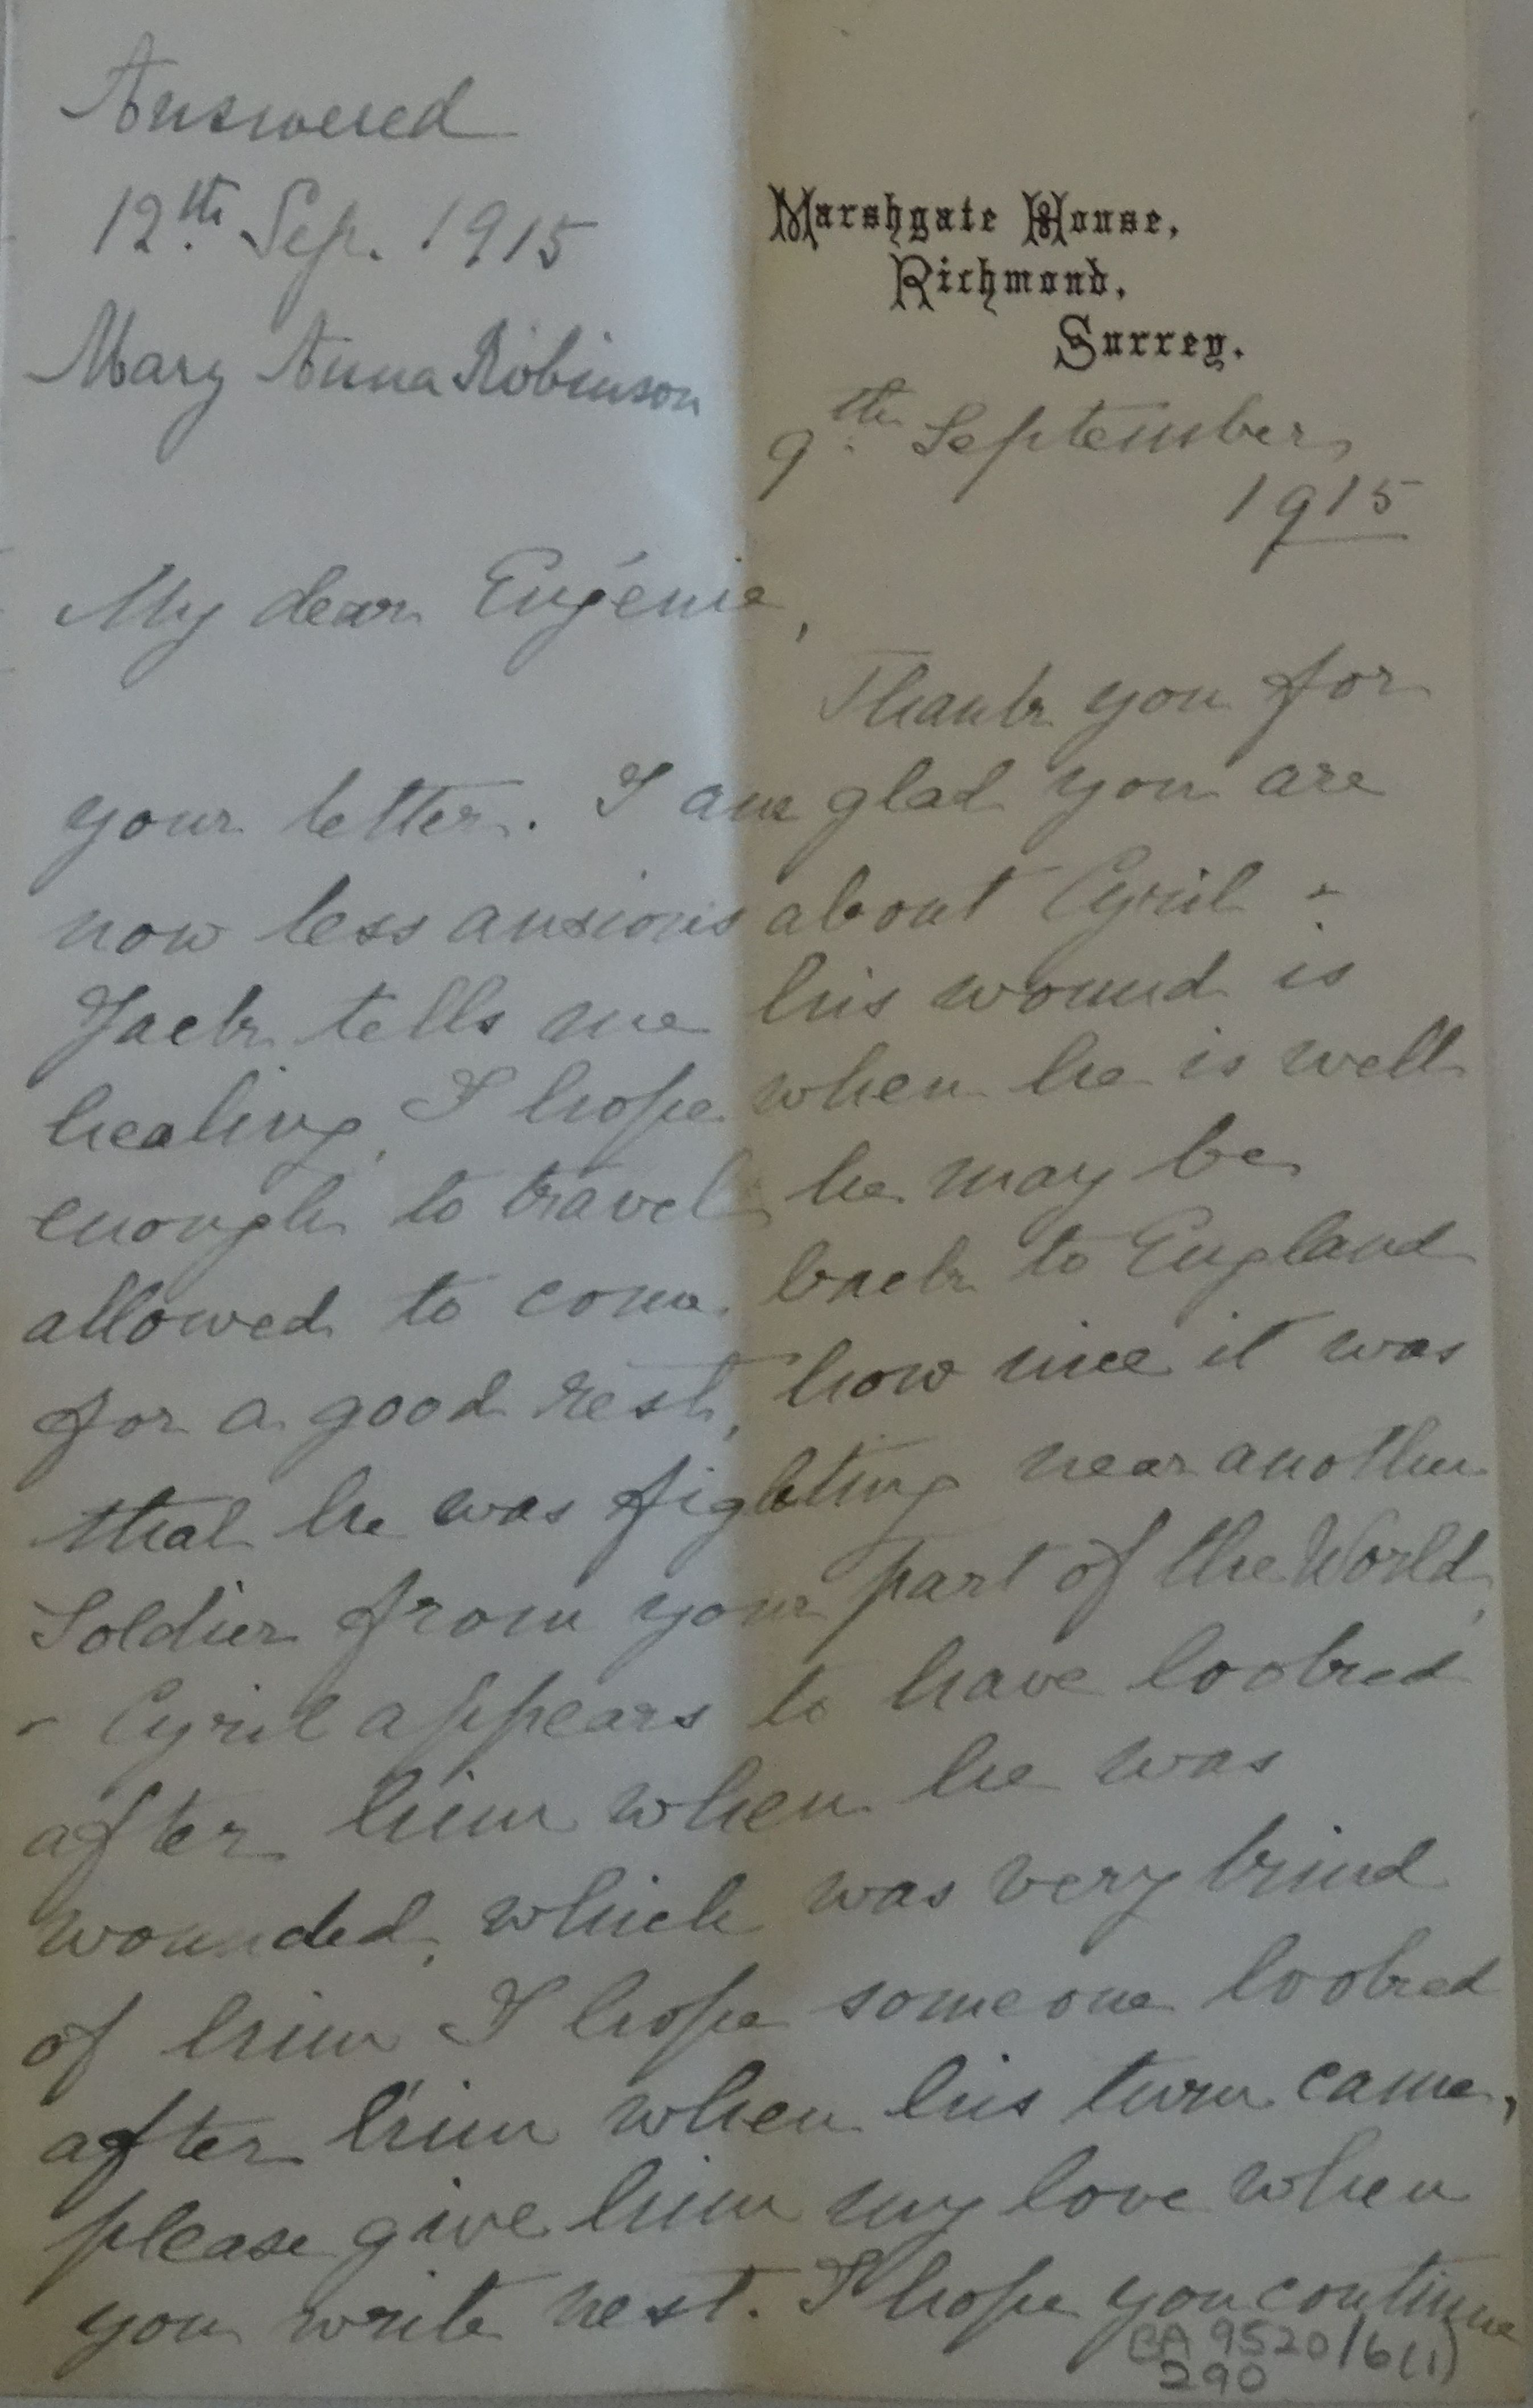 Answered
12th Sep. 1915
Mary Anna Robinson
Marshgate House,
Richmond,
Surrey.
9th September
1915
My dear Eugénie,
Thank you for
your letter. I am glad you are
now less anxious about Cyril -
Jack tells me his wound is
healing, I hope when he is well
enough to travel he may be
allowed to come back to England
for a good rest, how nice it was
that he was fighting near another
Soldier from your part of the World,
- Cyril appears to have looked
after him when he was
wounded, which was very kind
of him I hope someone looked
after him when his turn came,
please give him my love when
you write next. I hope you continue
CA 9520/6(1)
290